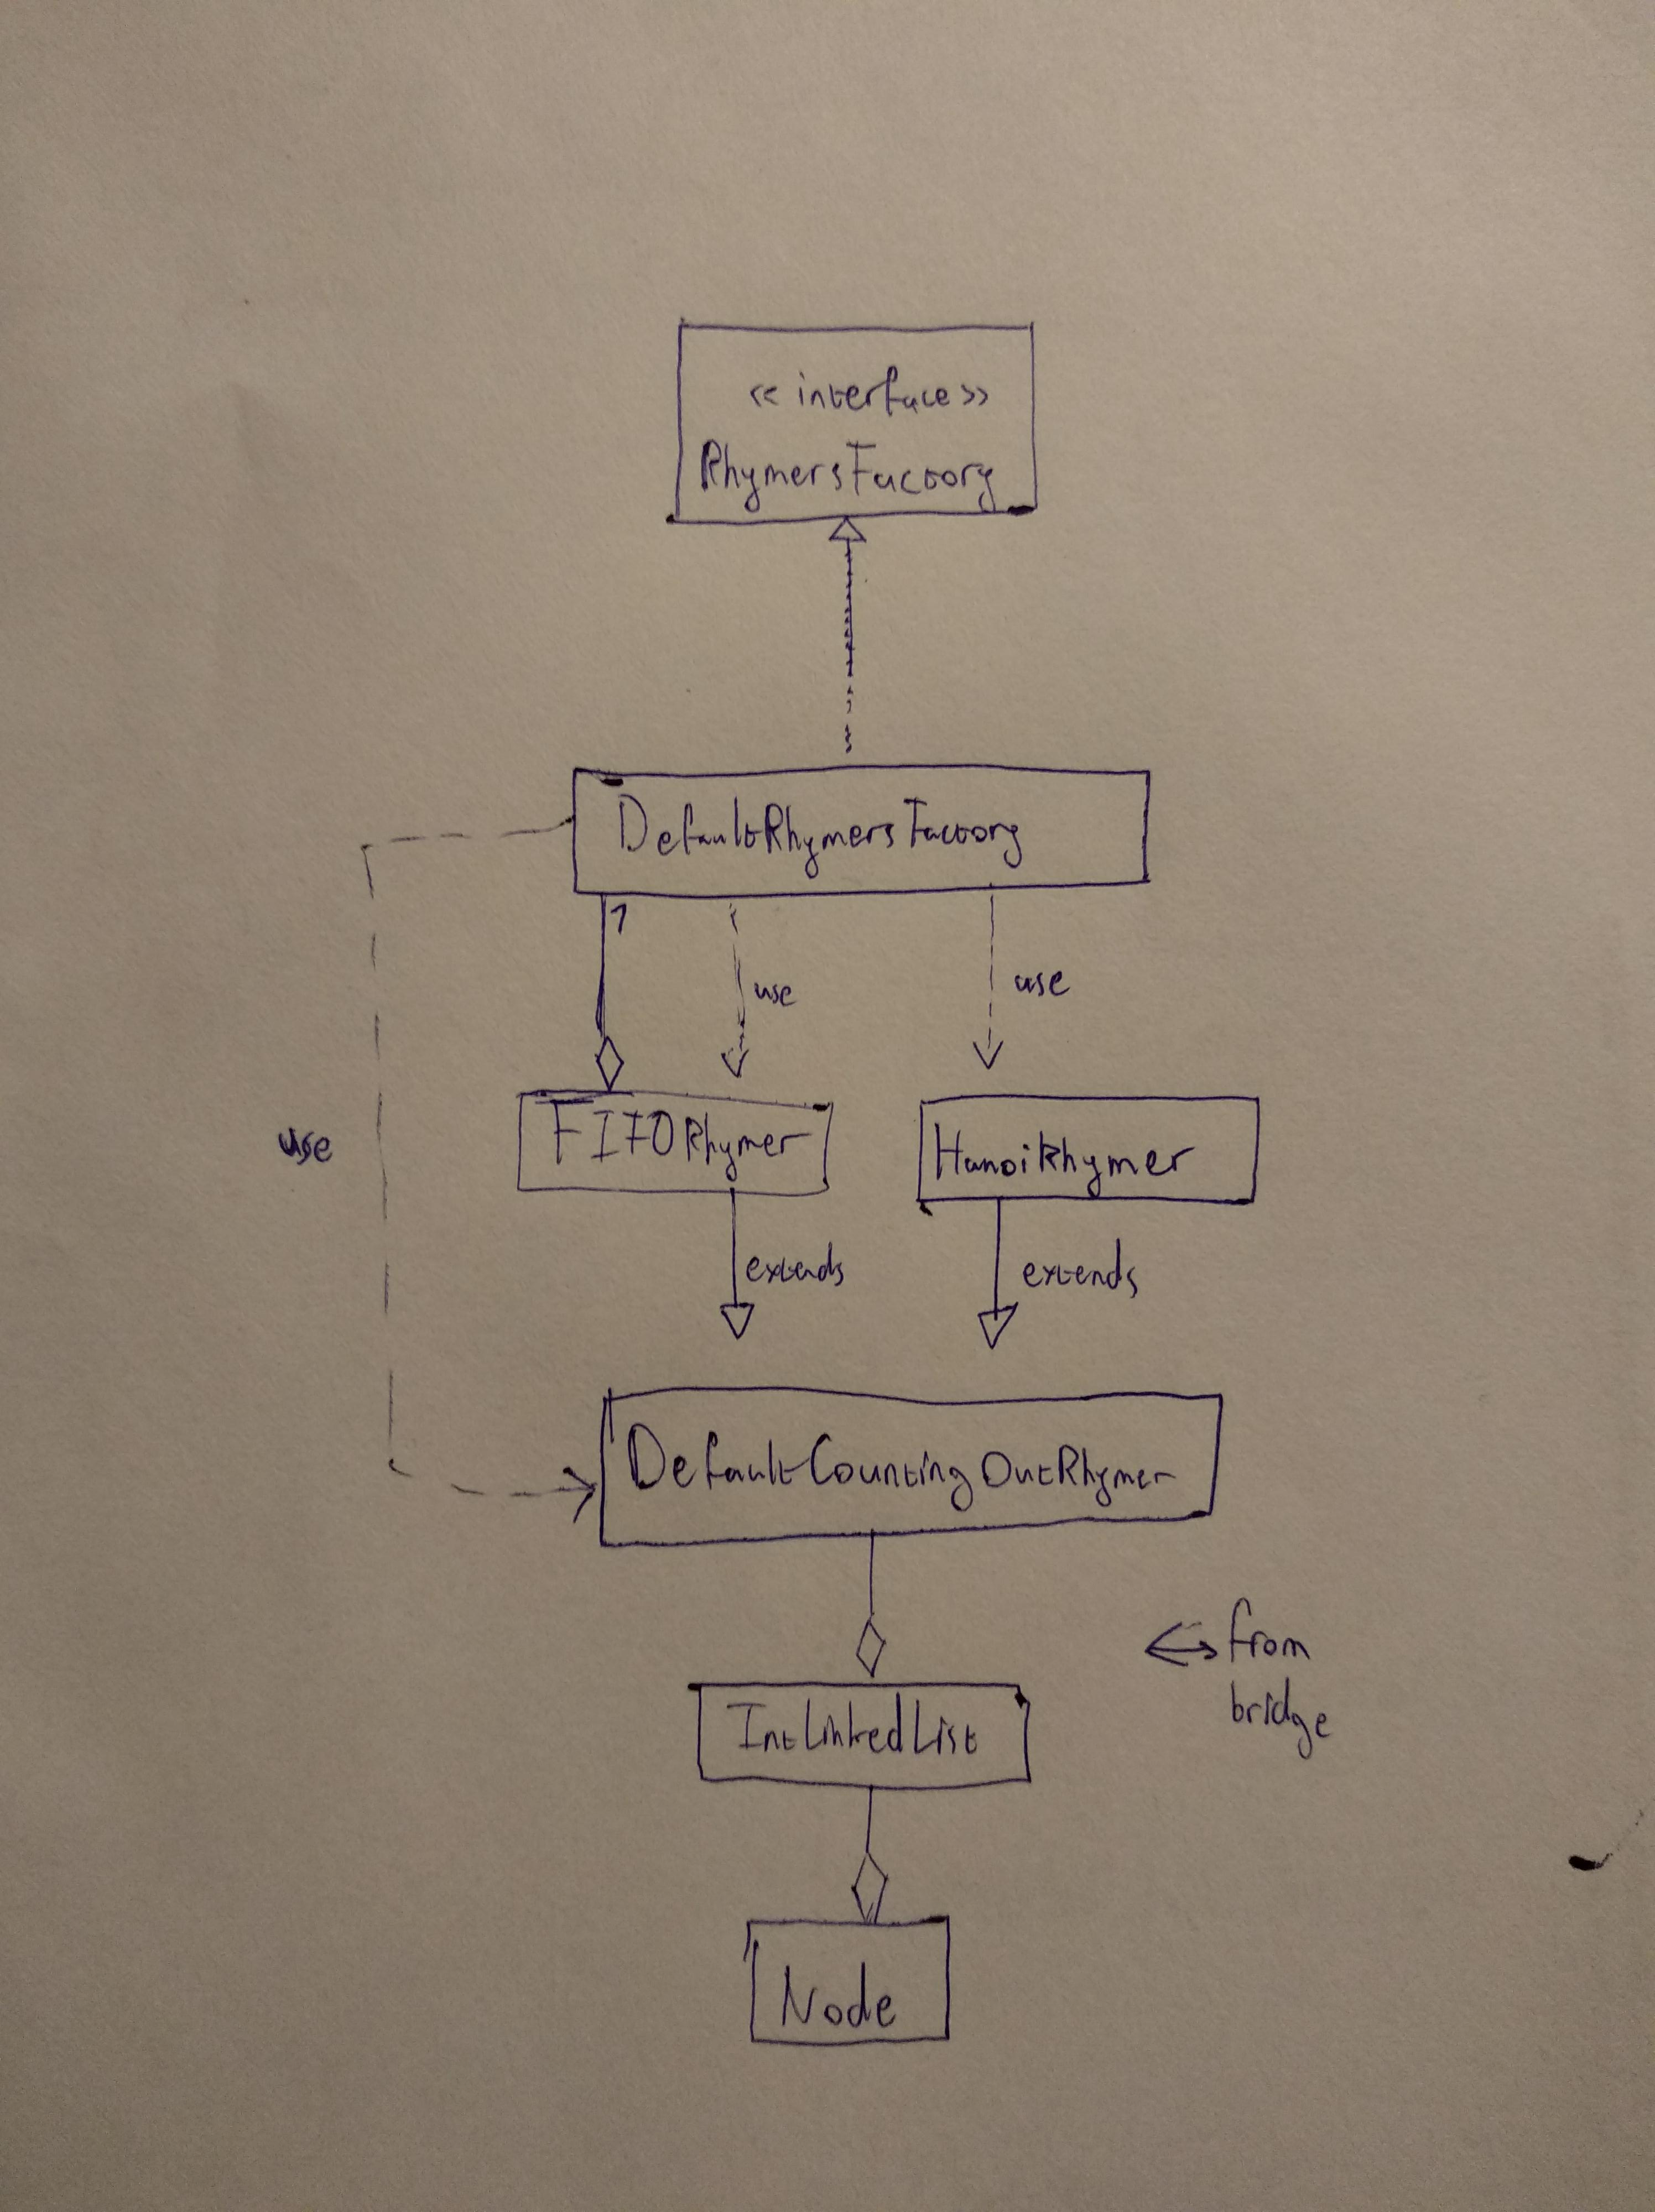 << interface >>
RhymersFactory
DefaultRhymersFactory
1
use
use
use
FIFORhymer
HanoiRhymer
extends
extends
DefaultCountingOutRhymer
from
bridge
IntLinkedList
Node